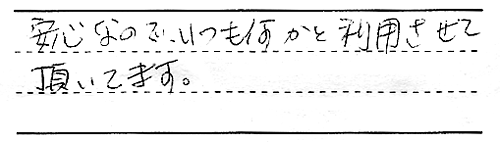 安心なので、いつも何かと利用させて
頂いてます。